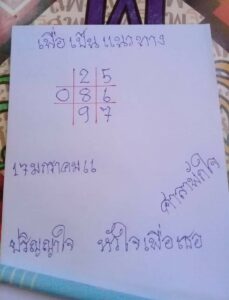 เพื่อเป็นแนวทาง
2 5
0 8 6
9 7
17 มกราคม
ปริญญาใจ หัวใจเพื่อเธอ